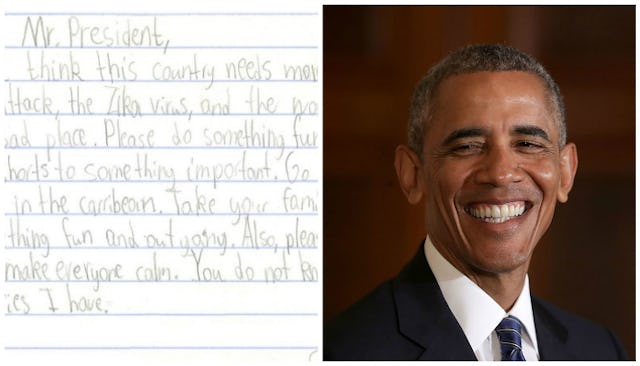 Mr. President,
think this country needs mor
ttack, the Zika virus, and the wo
ad place. Please do something fun
horts to something important. Go
in the carribean. Take your fami
thing fun and outgoing. Also, plea
make everyone calm. You do not kn
ies I have.